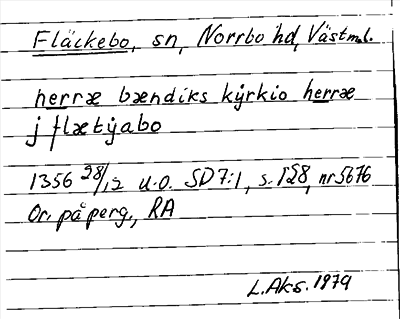 Fläckebo, sn, Norrbo hd, Västml.
herræ bændiks kyrkio herræ
j flætyabo
1356 28/12 u.o. SD 7:1, s. 128, nr 5676
Or. på perg., RA
L.Aks. 1979